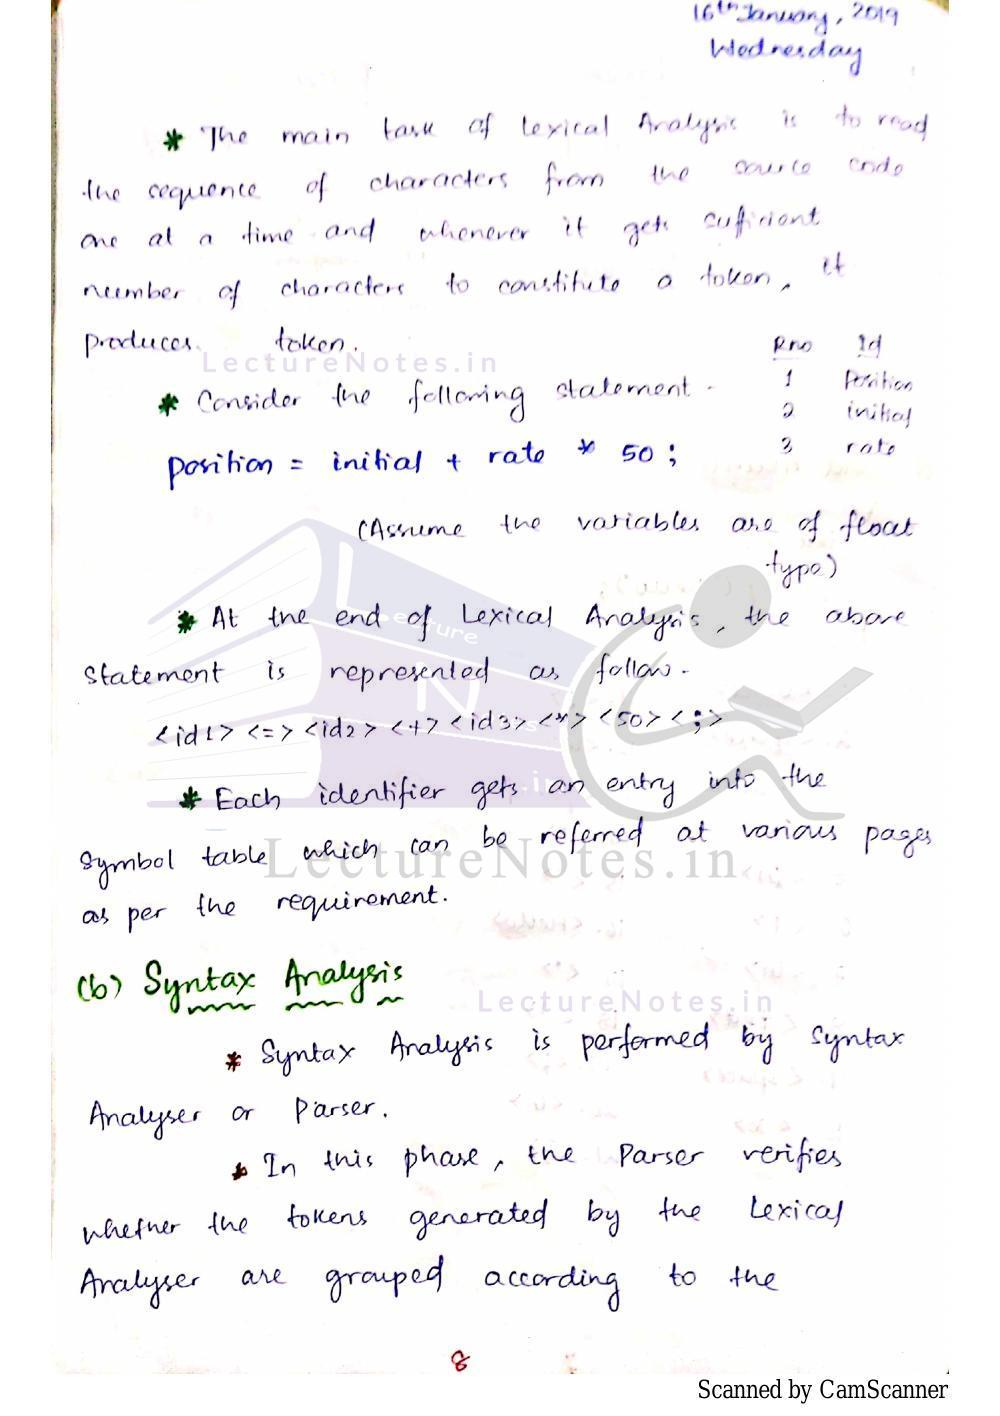 16th January, 2019
Wednesday
* The main task of Lexical Analysis is to read
the sequence of characters from the source code
one at a time and whenever it gets sufficient
number of characters to constitute a token, it
produces token.
LectureNotes.in
Rno Id
1 Position
2 initial
3 rate
* Consider the following statement -
position = initial + rate * 50 ;
(Assume the variables are of float
type)
* At the end of Lexical Analysis, the above
statement is represented as follow -
<id1> <=> <id2> <+> <id3> <*> <50> <;>
* Each identifier gets an entry into the
symbol table which can be referred at various pages
LectureNotes.in
as per the requirement.
(b) Syntax Analysis
LectureNotes.in
* Syntax Analysis is performed by Syntax
Analyser or Parser.
* In this phase, the Parser verifies
whether the tokens generated by the Lexical
Analyser are grouped according to the
8
Scanned by CamScanner